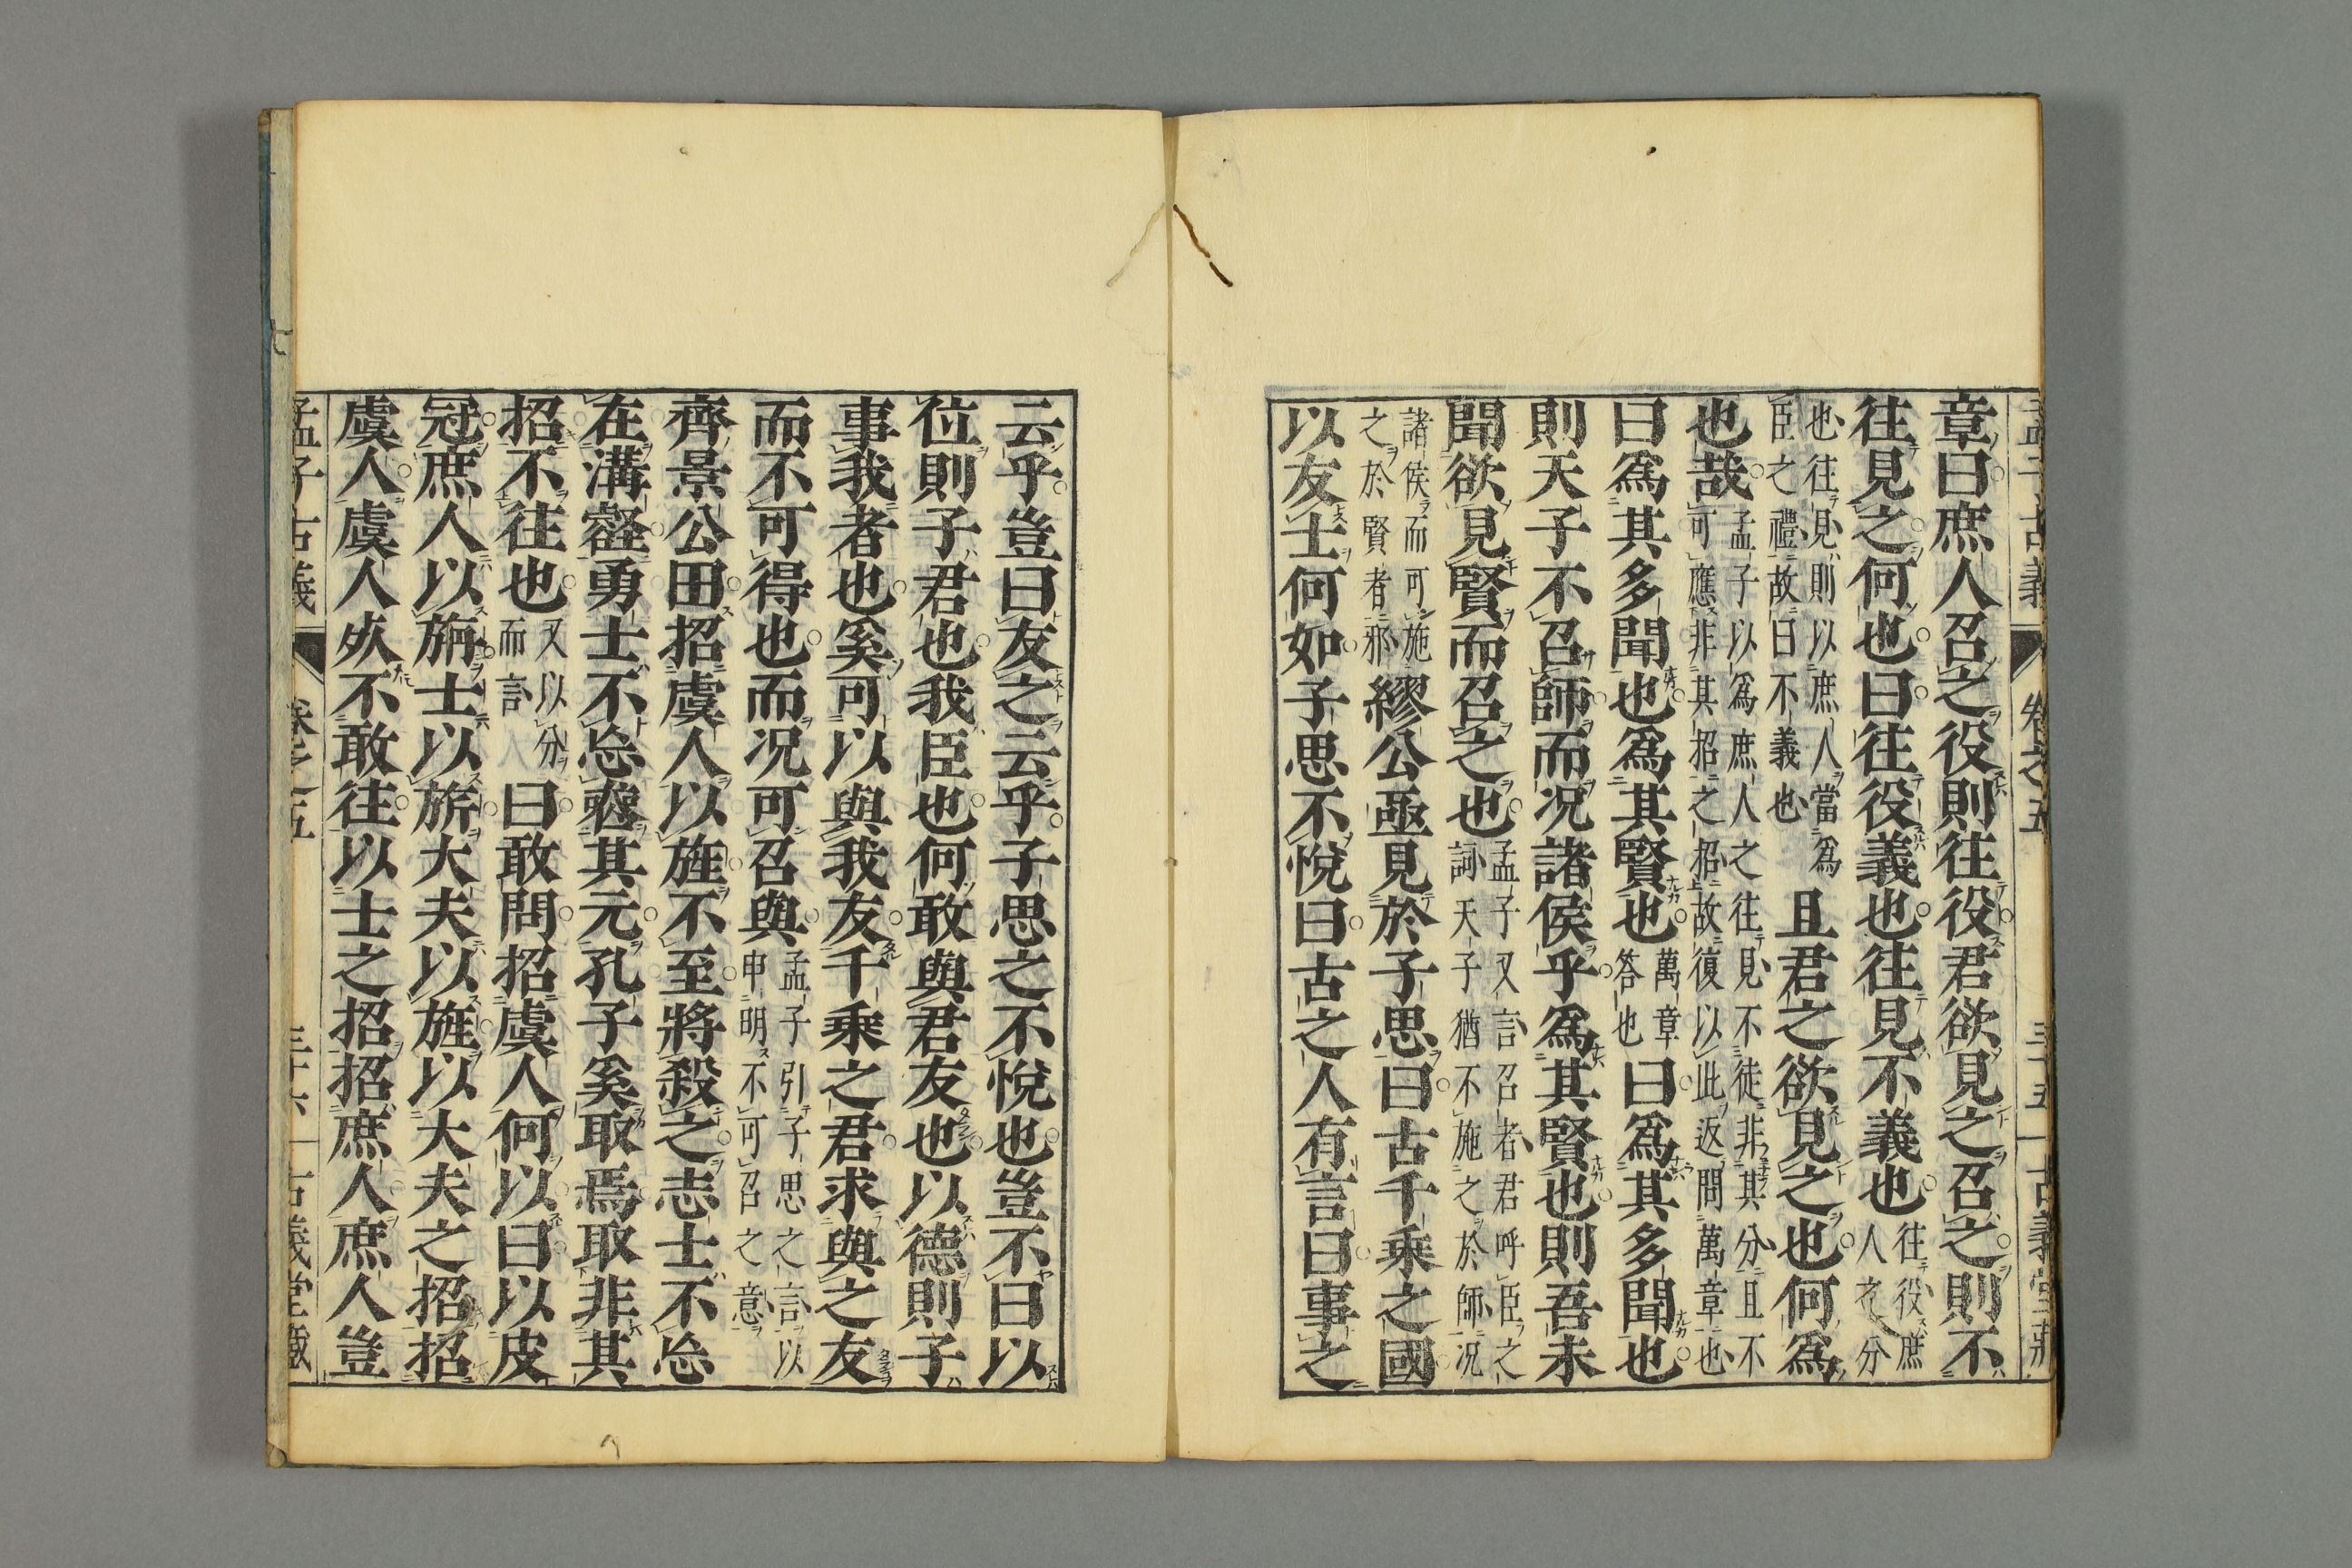 孟子古義 卷之五 三十五 古義堂藏
章曰庶人召之役則往役君欲見之召之則不
往見之何也曰往役義也往見不義也
往役庶
人之分
也往見則以庶人當爲
臣之禮故曰不義也
且君之欲見之也何爲
也哉
孟子以爲庶人之往見不徒非其分且不
可應非其招之招故復以此返問萬章也
曰爲其多聞也爲其賢也
萬章
答也
曰爲其多聞也
則天子不召師而况諸侯乎爲其賢也則吾未
聞欲見賢而召之也
孟子又言召者君呼臣之
詞天子猶不施之於師况
諸侯而可施
之於賢者邪
繆公亟見於子思曰古千乘之國
以友士何如子思不悅曰古之人有言曰事之
云乎豈曰友之云乎子思之不悅也豈不曰以
位則子君也我臣也何敢與君友也以德則子
事我者也奚可以與我友千乘之君求與之友
而不可得也而况可召與
孟子引子思之言以
申明不可召之意
齊景公田招虞人以旌不至將殺之志士不忘
在溝壑勇士不忘喪其元孔子奚取焉取非其
招不往也
又以分
而言
曰敢問招虞人何以曰以皮
冠庶人以旃士以旂大夫以旌以大夫之招招
虞人虞人死不敢往以士之招招庶人庶人豈
孟子古義 卷之五 三十六 古義堂藏